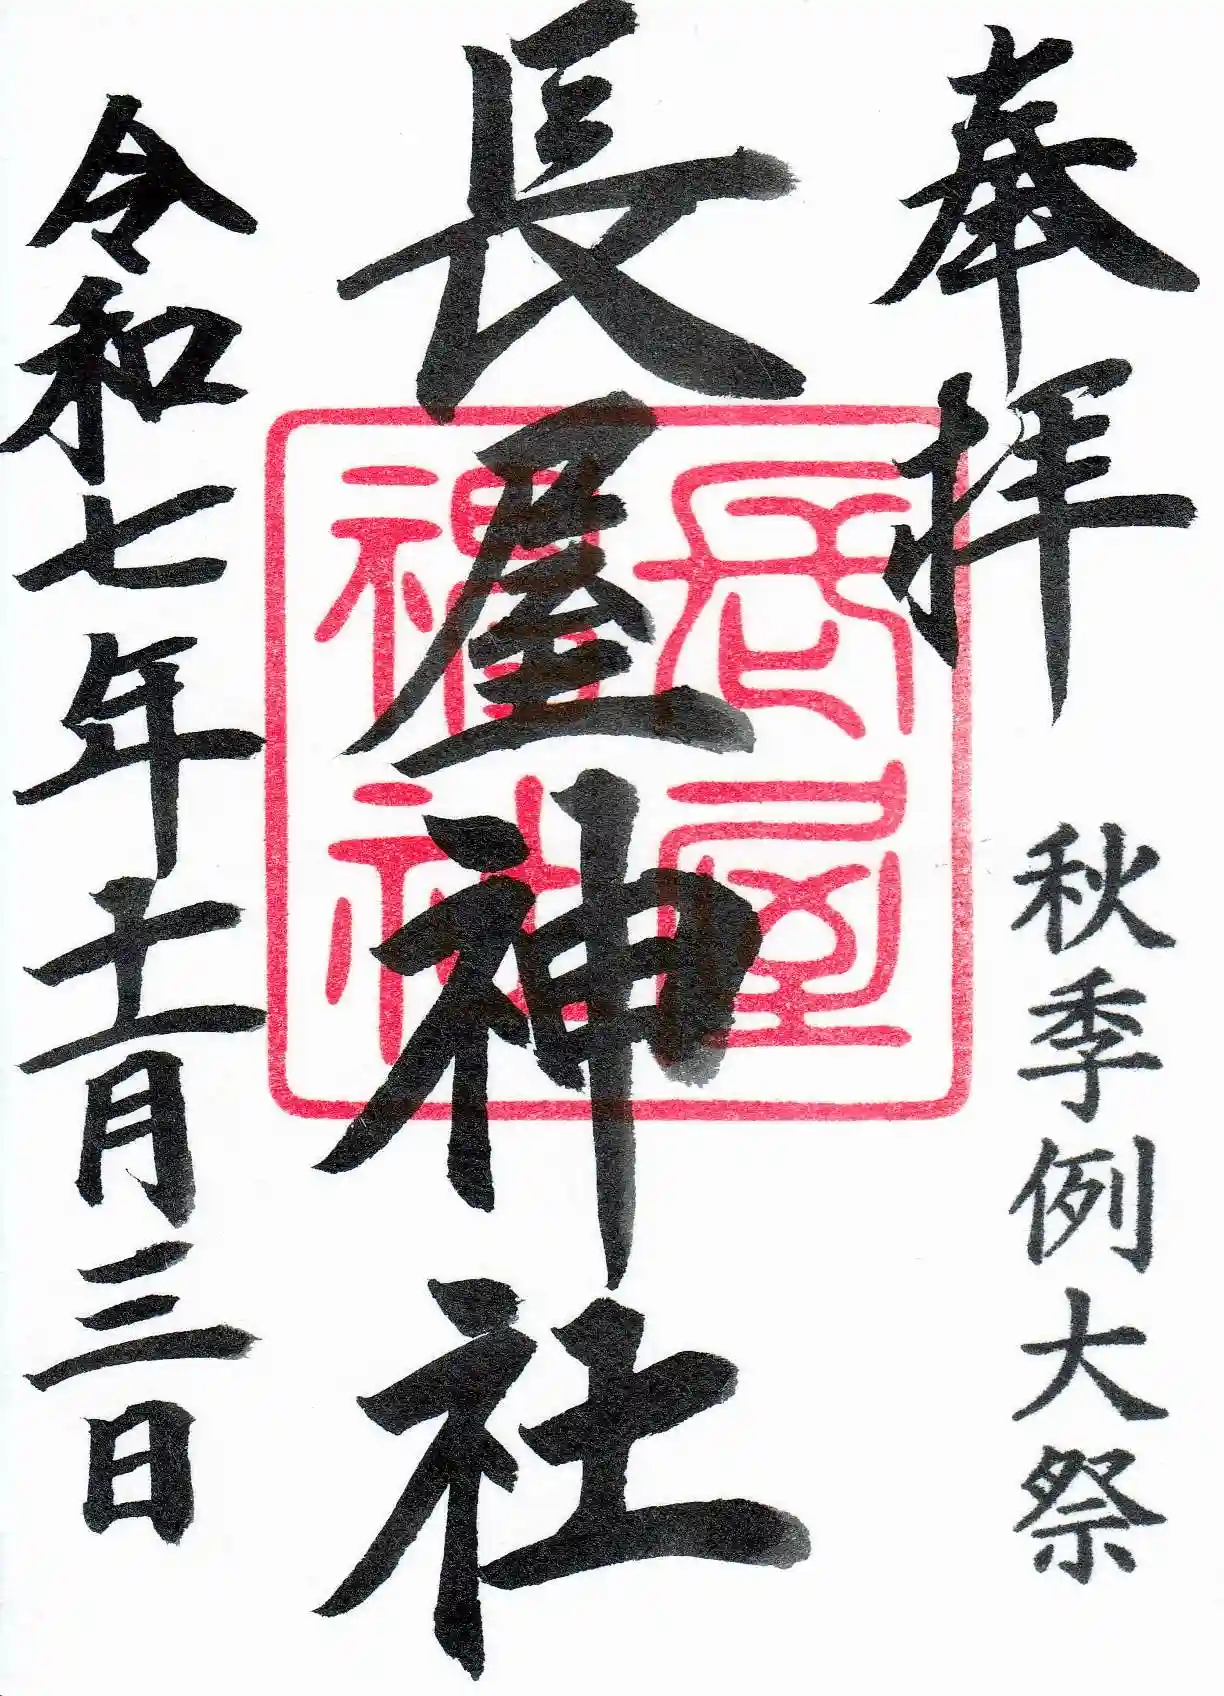 奉拝
秋季例大祭
長屋神社
長屋
神社
令和七年十一月三日